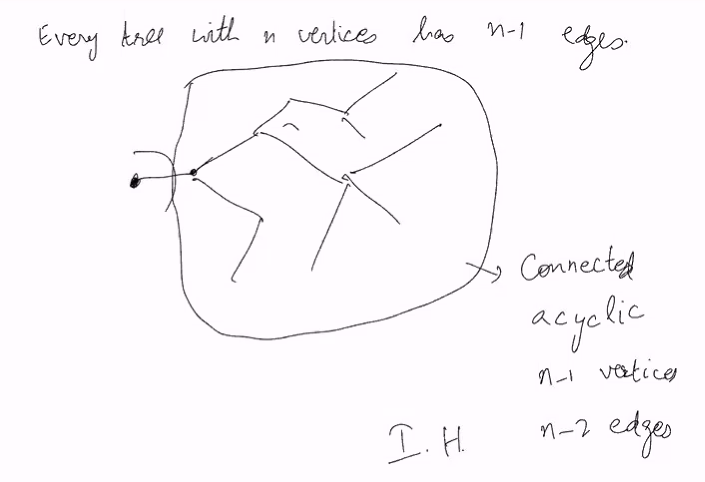 Every tree with n vertices has n-1 edges.
Connected
acyclic
n-1 vertices
n-2 edges
I.H.